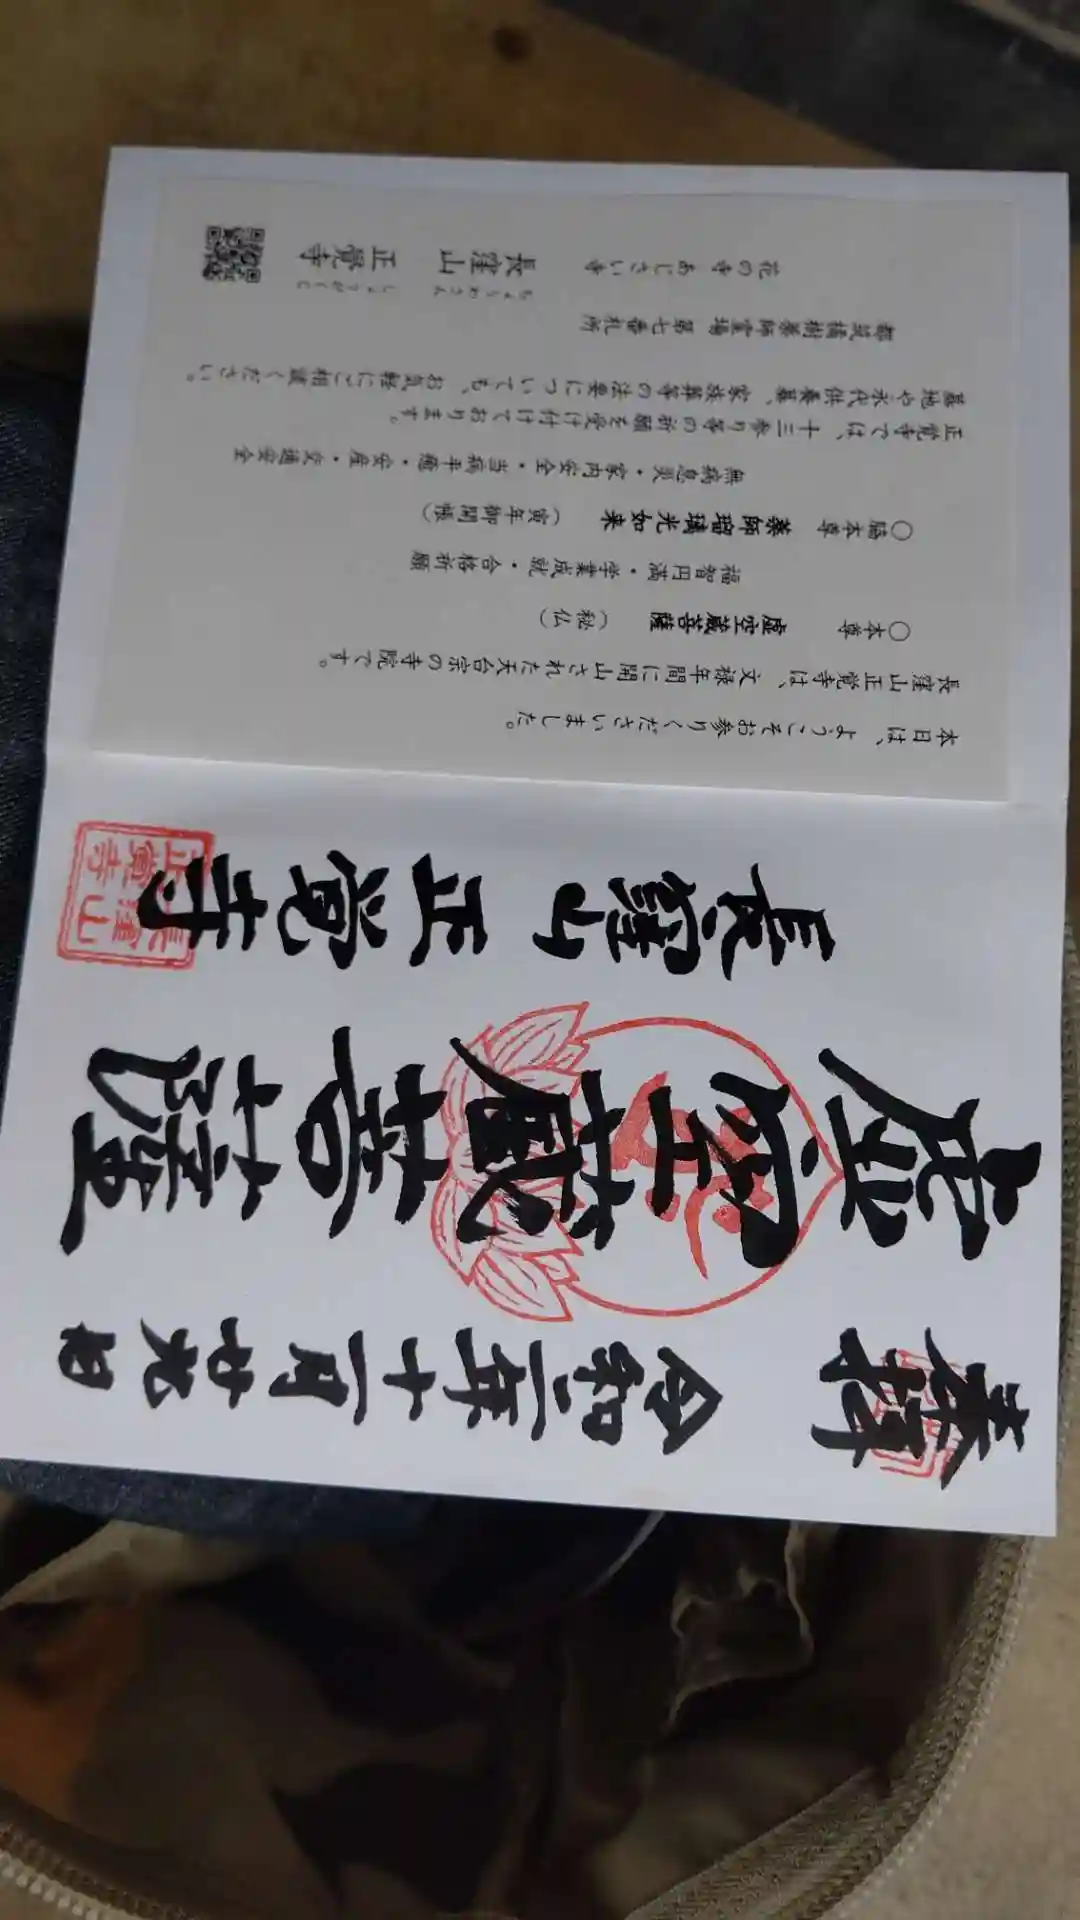 奉拝
令和二年十一月廿九日
虚空蔵菩薩
長窪山 正覚寺
長窪山
正覚寺
本日は、ようこそお参りくださいました。
長窪山正覚寺は、文禄年間に開山された天台宗の寺院です。
○本尊 虚空蔵菩薩 （秘仏）
福智円満・学業成就・合格祈願
○脇本尊 薬師瑠璃光如来 （寅年御開帳）
無病息災・家内安全・当病平癒・安産・交通安全
正覚寺では、十三参り等の祈願を受け付けております。
墓地や永代供養墓、家族葬等の法要についても、お気軽にご相談ください。
都筑橘樹薬師霊場 第七番札所
花の寺 あじさい寺
ちょうわさん しょうがくじ
長窪山 正覺寺